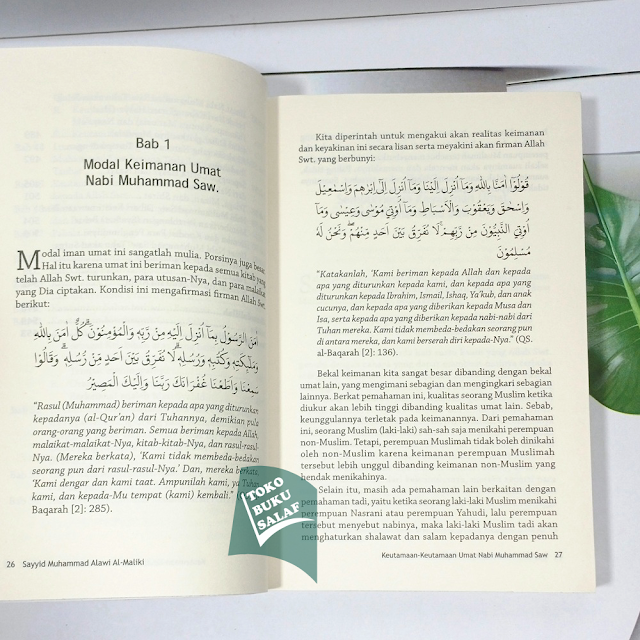 Bab 1
Modal Keimanan Umat
Nabi Muhammad Saw.
Modal iman umat ini sangatlah mulia. Porsinya juga besar.
Hal itu karena umat ini beriman kepada semua kitab yang
telah Allah Swt. turunkan, para utusan-Nya, dan para malaikat
yang Dia ciptakan. Kondisi ini mengafirmasi firman Allah Swt.
berikut:
اٰمَنَ الرَّسُوْلُ بِمَآ اُنْزِلَ اِلَيْهِ مِنْ رَّبِّهٖ وَالْمُؤْمِنُوْنَۗ كُلٌّ اٰمَنَ بِاللّٰهِ
وَمَلٰۤىِٕكَتِهٖ وَكُتُبِهٖ وَرُسُلِهٖۗ لَا نُفَرِّقُ بَيْنَ اَحَدٍ مِّنْ رُّسُلِهٖۗ وَقَالُوْا
سَمِعْنَا وَاَطَعْنَا غُفْرَانَكَ رَبَّنَا وَاِلَيْكَ الْمَصِيْرُ
“Rasul (Muhammad) beriman kepada apa yang diturunkan
kepadanya (al-Qur’an) dari Tuhannya, demikian pula
orang-orang yang beriman. Semua beriman kepada Allah,
malaikat-malaikat-Nya, kitab-kitab-Nya, dan rasul-rasul-
Nya. (Mereka berkata), ‘Kami tidak membeda-bedakan
seorang pun dari rasul-rasul-Nya.’ Dan, mereka berkata,
‘Kami dengar dan kami taat. Ampunilah kami, ya Tuhan
kami, dan kepada-Mu tempat (kami) kembali.’”
Baqarah [2]: 285).
26 Sayyid Muhammad Alawi Al-Maliki
Kita diperintah untuk mengakui akan realitas keimanan
dan keyakinan ini secara lisan serta meyakini akan firman Allah
Swt. yang berbunyi:
قُوْلُوْٓا اٰمَنَّا بِاللّٰهِ وَمَآ اُنْزِلَ اِلَيْنَا وَمَآ اُنْزِلَ اِلٰٓى اِبْرٰهٖمَ وَاِسْمٰعِيْلَ
وَاِسْحٰقَ وَيَعْقُوْبَ وَالْاَسْبَاطِ وَمَآ اُوْتِيَ مُوْسٰى وَعِيْسٰى وَمَآ
اُوْتِيَ النَّبِيُّوْنَ مِنْ رَّبِّهِمْۚ لَا نُفَرِّقُ بَيْنَ اَحَدٍ مِّنْهُمْۖ وَنَحْنُ لَهٗ
مُسْلِمُوْنَ
“Katakanlah, ‘Kami beriman kepada Allah dan kepada
apa yang diturunkan kepada kami, dan kepada apa yang
diturunkan kepada Ibrahim, Ismail, Ishaq, Ya’kub, dan anak
cucunya, dan kepada apa yang diberikan kepada Musa dan
Isa, serta kepada apa yang diberikan kepada nabi-nabi dari
Tuhan mereka. Kami tidak membeda-bedakan seorang pun
di antara mereka, dan kami berserah diri kepada-Nya.” (QS.
al-Baqarah [2]: 136).
Bekal keimanan kita sangat besar dibanding dengan bekal
umat lain, yang mengimani sebagian dan mengingkari sebagian
lainnya. Berkat pemahaman ini, kualitas seorang Muslim ketika
diukur akan lebih tinggi dibanding kualitas umat lain. Sebab,
keunggulannya terletak pada keimanannya. Dari pemahaman
ini, seorang Muslim (laki-laki) sah-sah saja menikahi perempuan
non-Muslim. Tetapi, perempuan Muslimah tidak boleh dinikahi
oleh non-Muslim karena keimanan perempuan Muslimah
tersebut lebih unggul dibanding keimanan non-Muslim yang
hendak menikahinya.
Selain itu, masih ada pemahaman lain berkaitan dengan
pemahaman tadi, yaitu ketika seorang laki-laki Muslim menikahi
perempuan Nasrani atau perempuan Yahudi, lalu perempuan
tersebut menyebut nabinya, maka laki-laki Muslim tadi akan
menghaturkan shalawat dan salam kepadanya dengan penuh
Keutamaan-Keutamaan Umat Nabi Muhammad Saw 27
TOKO
BUKU
SALAF